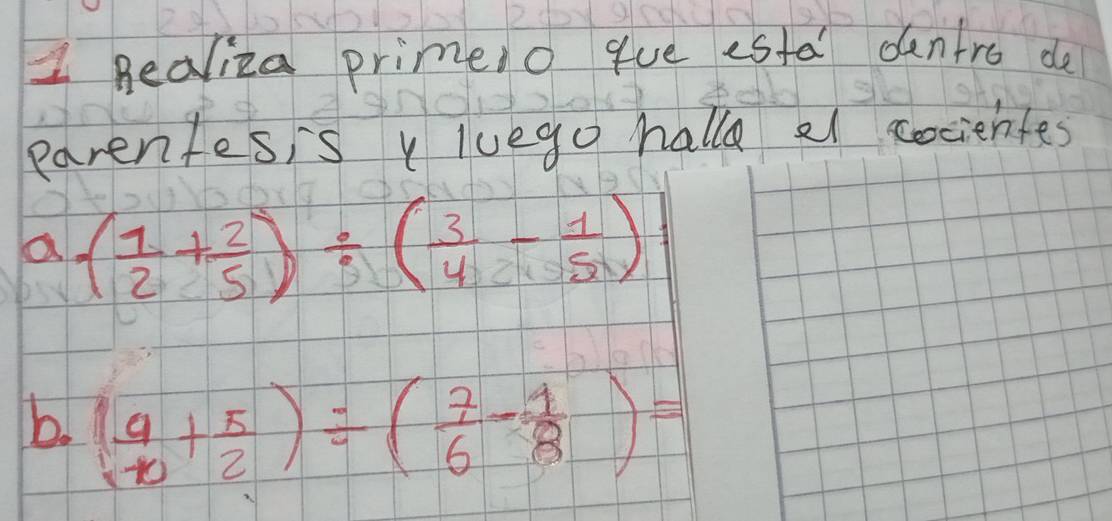 1 Realiza primero que está dentro de
parentesis y luego halla el cocientes
a. (1/2 + 2/5) ÷ (3/4 - 1/5) =
b. (9/10 + 5/2) ÷ (7/6 - 1/8) =